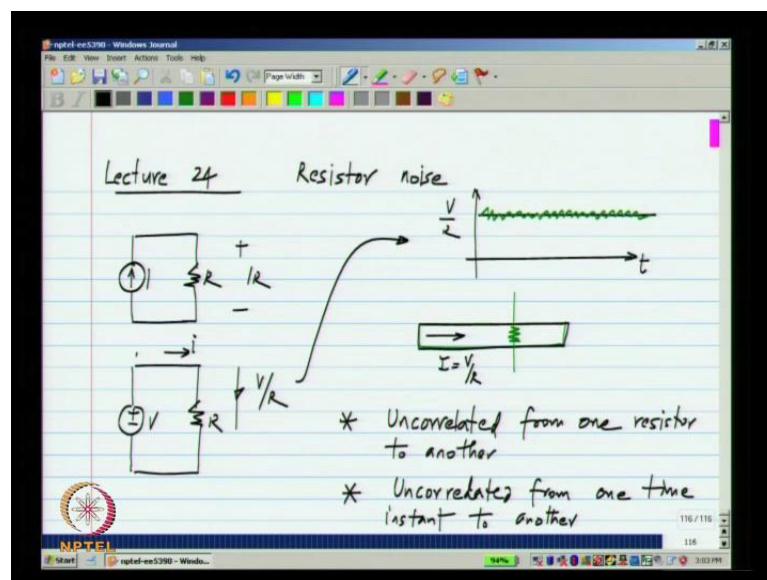 nptel-ee5390 - Windows Journal
File Edit View Insert Actions Tools Help
Page Width
B I
Lecture 24 Resistor noise
V/R
t
I
R
+
IR
-
i
V
R
V/R
I = V/R
* Uncorrelated from one resistor
to another
* Uncorrelated from one time
instant to another
116 / 116
116
NPTEL
Start
nptel-ee5390 - Windo...
94%
3:03 PM